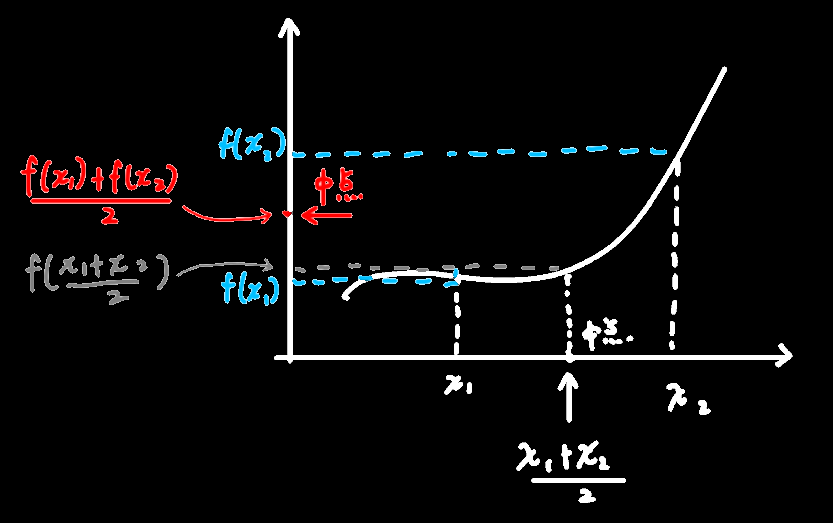 f(x₂)
f(x₁)+f(x₂)/2
中点
f((x₁+x₂)/2)
f(x₁)
中点
x₁
x₂
x₁+x₂/2